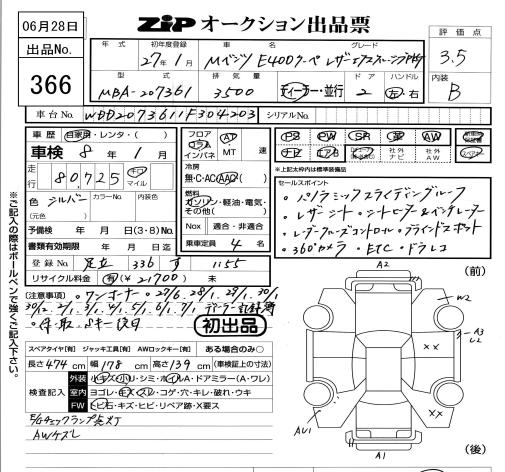 06月28日
ZIP オークション出品票
出品No.
366
評価点
3.5
内装
B
年式 初年度登録 車名 グレード
27年1月 Mベンツ E400クーペ レザーエクスクルーシブPKG
型式 排気量 ドア ハンドル
MBA-207361 3500 ディーラー・並行 2 左・右
車台No. WDD2073611F304203 シリアルNo.
車歴 自家用・レンタ・( )
車検 8年1月
走行 80,725 キロ マイル
色 シルバー カラーNo. 内装色
(元色)
予備検 年 月 日(3・8)No.
書類有効期限 年 月 日迄
登録No. 足立 336 す 1155
リサイクル料金 有(¥21700) 未
フロア コラム インパネ AT MT 速
冷房
無・C・AC・AAC( )
燃料
ガソリン・軽油・電気・その他( )
Nox 適合・非適合
乗車定員 4名
PS PW SR 革 AW
ナビ エアB 社外ナビ 社外AW スペアキー
*上記太枠内は標準装備品
セールスポイント
・パノラミックスライディングルーフ
・レザーシート・シートヒーター&ベンチレーター
・レーダークルーズコントロール・ブラインドスポット
・360°カメラ・ETC・ドラレコ
(注意事項)・ワンオーナー・27/6.28/1.29/1.30/1
30/12.2/1.3/1.4/1.5/1.6/1.7/1 ディーラー記録簿
・保・取 8キー説有
初出品
スペアタイヤ[有] ジャッキ工具[有] AWロックキー[有] ある場合のみ○
長さ474cm 幅178cm 高さ139cm (車検証上の寸法)
検査記入
外装 小キズ・小凹・シミ・ホイルA・ドアミラー(A・ワレ)
室内 ヨゴレ・キズ・スレ・コゲ・穴・キレ・破れ・ウキ
FW トビ石・キズ・ヒビ・リペア跡・X要ス
E/Gチェックランプ点灯
AWキズレ
※ご記入の際はボールペンで強くご記入下さい。
(前)
A2
W2
A3
U2
××
××
AU1
A1
(後)